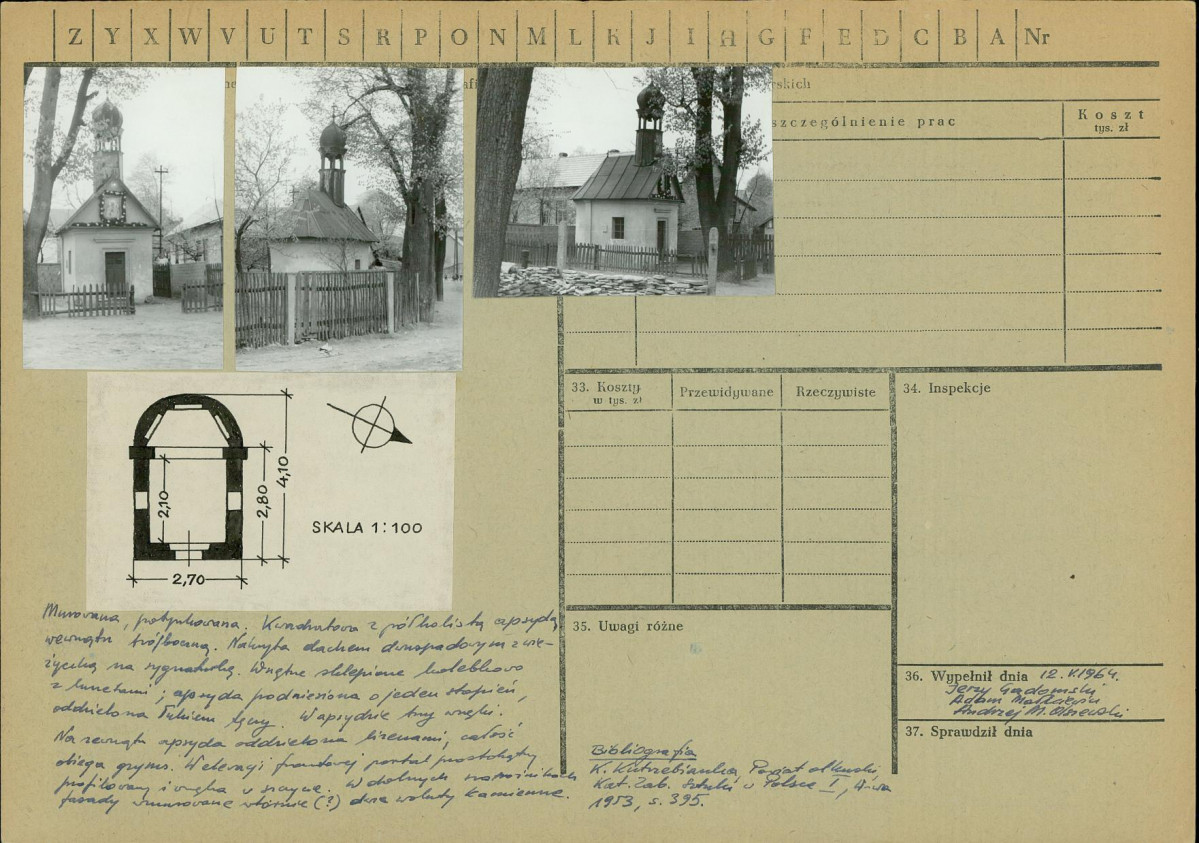 Z Y X W V U T S R P O N M L K J I H G F E D C B A Nr
rskich
szczególnienie prac
Koszt
tys. zł
33. Koszty
w tys. zł
Przewidywane
Rzeczywiste
34. Inspekcje
2,10
2,80
4,10
2,70
SKALA 1:100
Murowana, potynkowana. Kwadratowa z półkolistą apsydą,
wewnątrz trójboczną. Nakryta dachem dwuspadowym z wie-
życzką na sygnaturkę. Wnętrze sklepione kolebkowo
z lunetami; apsyda podniesiona o jeden stopień,
oddzielona łukiem tęczy. W apsydzie trzy wnęki.
Na zewnątrz apsyda oddzielona lizenami, całość
obiega gzyms. W elewacji frontowej portal prostokątny
profilowany i wnęka w szczycie. W dolnych narożnikach
fasady wmurowane wtórnie (?) dwie woluty kamienne.
35. Uwagi różne
Bibliografia
K. Kutrzebianka, Powiat olkuski,
Kat. Zab. Sztuki w Polsce I, W-wa
1953, s. 395.
36. Wypełnił dnia 12.V.1964.
Jerzy Gadomski
Adam Małkiewicz
Andrzej M. Olszewski
37. Sprawdził dnia